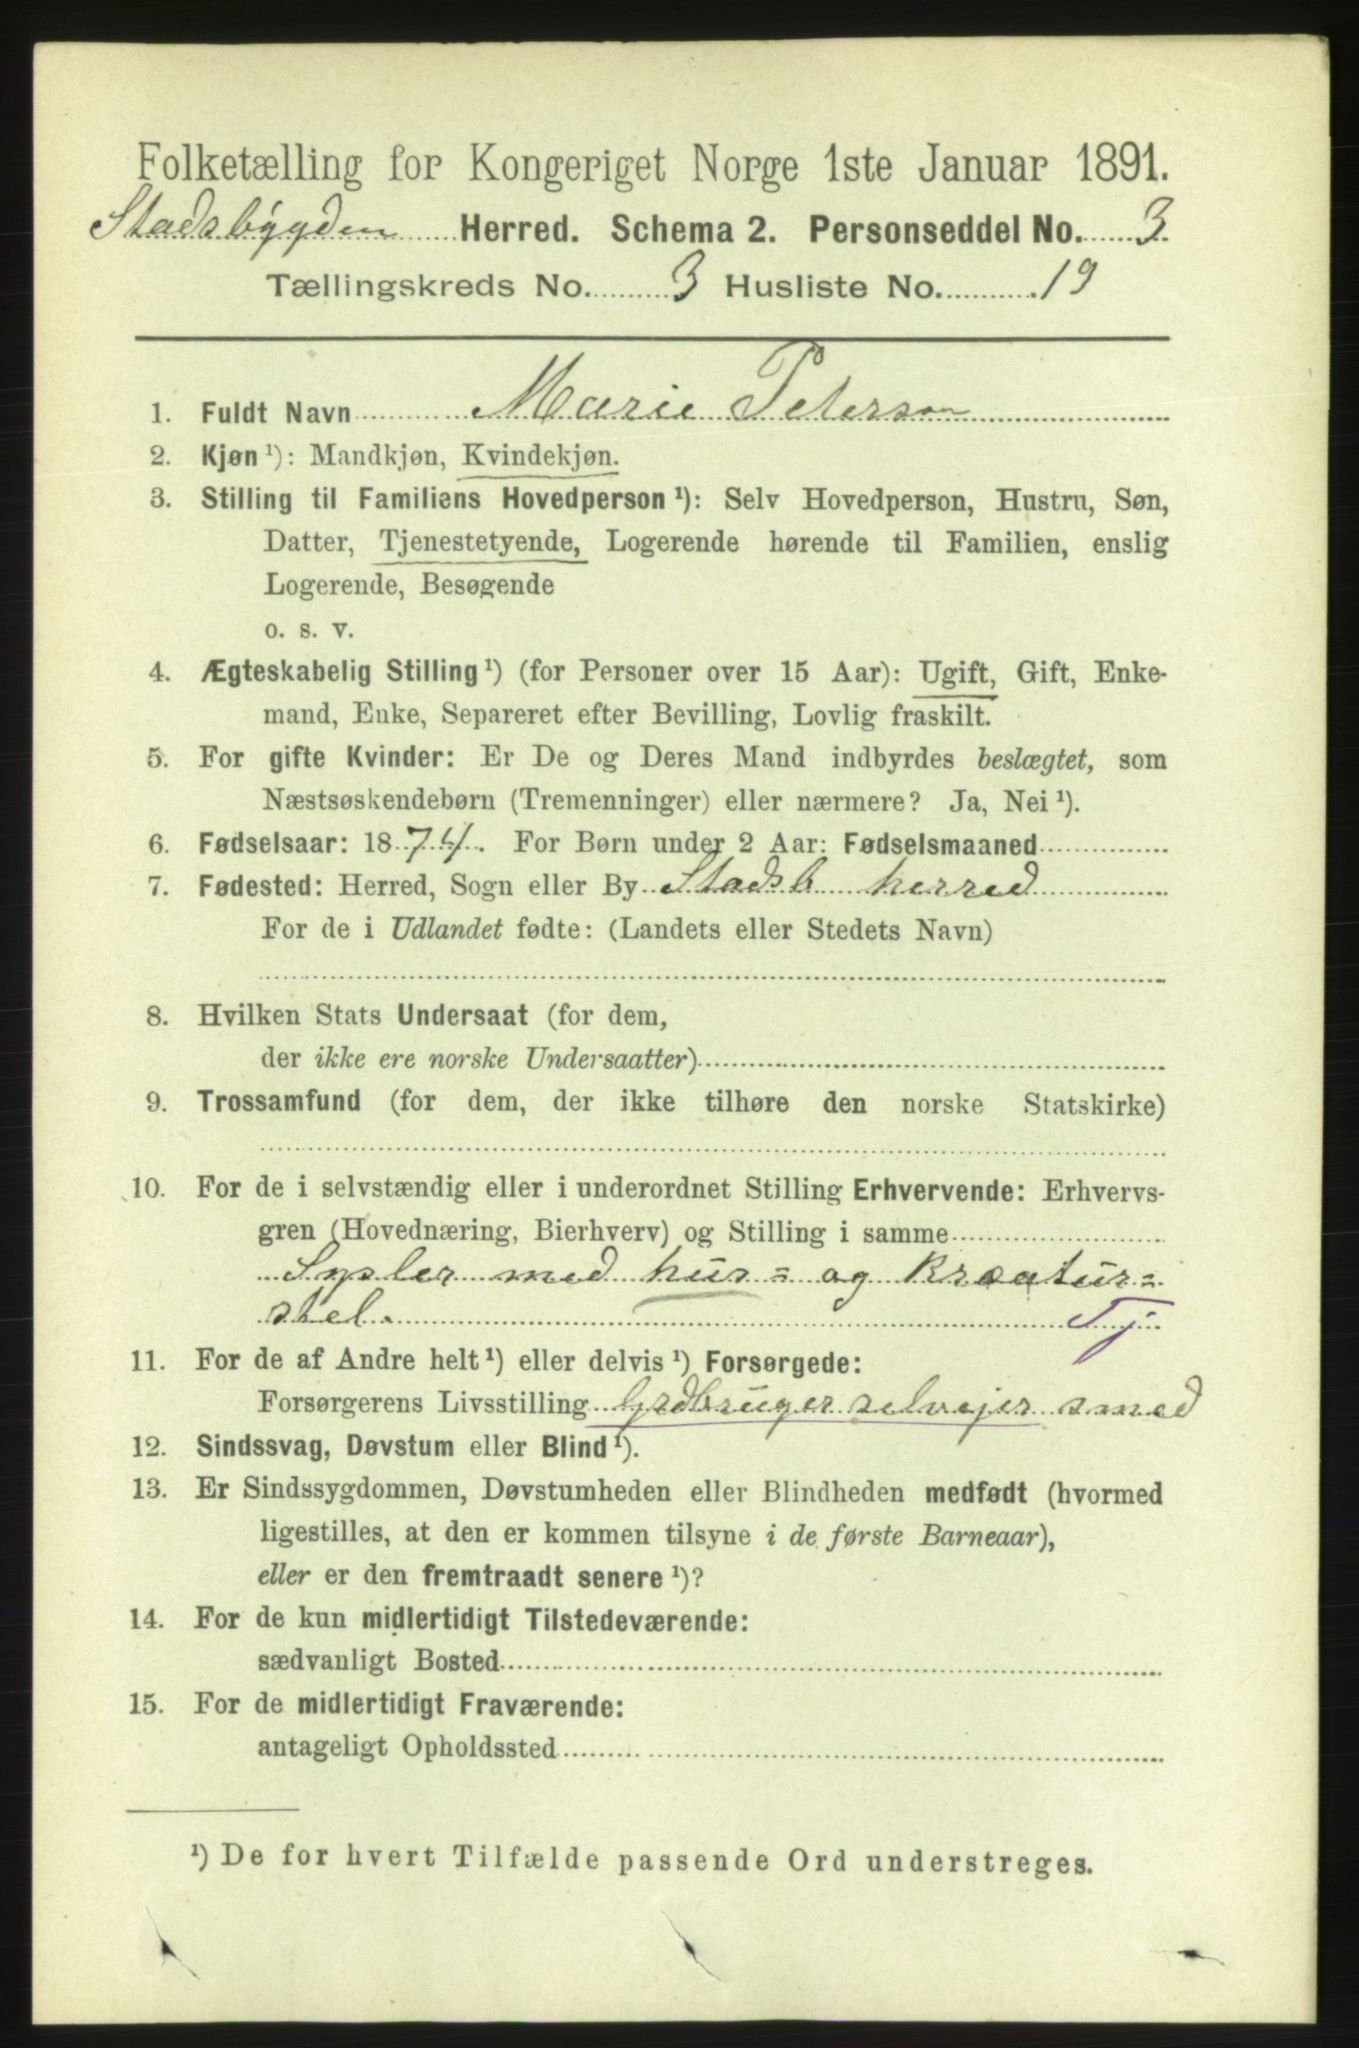 Folketælling for Kongeriget Norge 1ste Januar 1891.
Stadsbygden Herred. Schema 2. Personseddel No. 3
Tællingskreds No. 3 Husliste No. 19
1. Fuldt Navn Marie Peterson
2. Kjøn ¹): Mandkjøn, Kvindekjøn.
3. Stilling til Familiens Hovedperson ¹): Selv Hovedperson, Hustru, Søn,
Datter, Tjenestetyende, Logerende hørende til Familien, enslig
Logerende, Besøgende
o. s. v.
4. Ægteskabelig Stilling ¹) (for Personer over 15 Aar): Ugift, Gift, Enke-
mand, Enke, Separeret efter Bevilling, Lovlig fraskilt.
5. For gifte Kvinder: Er De og Deres Mand indbyrdes beslægtet, som
Næstsøskendebørn (Tremenninger) eller nærmere? Ja, Nei ¹).
6. Fødselsaar: 1874. For Børn under 2 Aar: Fødselsmaaned
7. Fødested: Herred, Sogn eller By Stadsb herred
For de i Udlandet fødte: (Landets eller Stedets Navn)
8. Hvilken Stats Undersaat (for dem,
der ikke ere norske Undersaatter)
9. Trossamfund (for dem, der ikke tilhøre den norske Statskirke)
10. For de i selvstændig eller i underordnet Stilling Erhvervende: Erhvervs-
gren (Hovednæring, Bierhverv) og Stilling i samme
Sysler med hus= og Kreatur=
stel. Tj
11. For de af Andre helt ¹) eller delvis ¹) Forsørgede:
Forsørgerens Livsstilling Grdbruger selvejer smed
12. Sindssvag, Døvstum eller Blind ¹).
13. Er Sindssygdommen, Døvstumheden eller Blindheden medfødt (hvormed
ligestilles, at den er kommen tilsyne i de første Barneaar),
eller er den fremtraadt senere ¹)?
14. For de kun midlertidigt Tilstedeværende:
sædvanligt Bosted
15. For de midlertidigt Fraværende:
antageligt Opholdssted
¹) De for hvert Tilfælde passende Ord understreges.